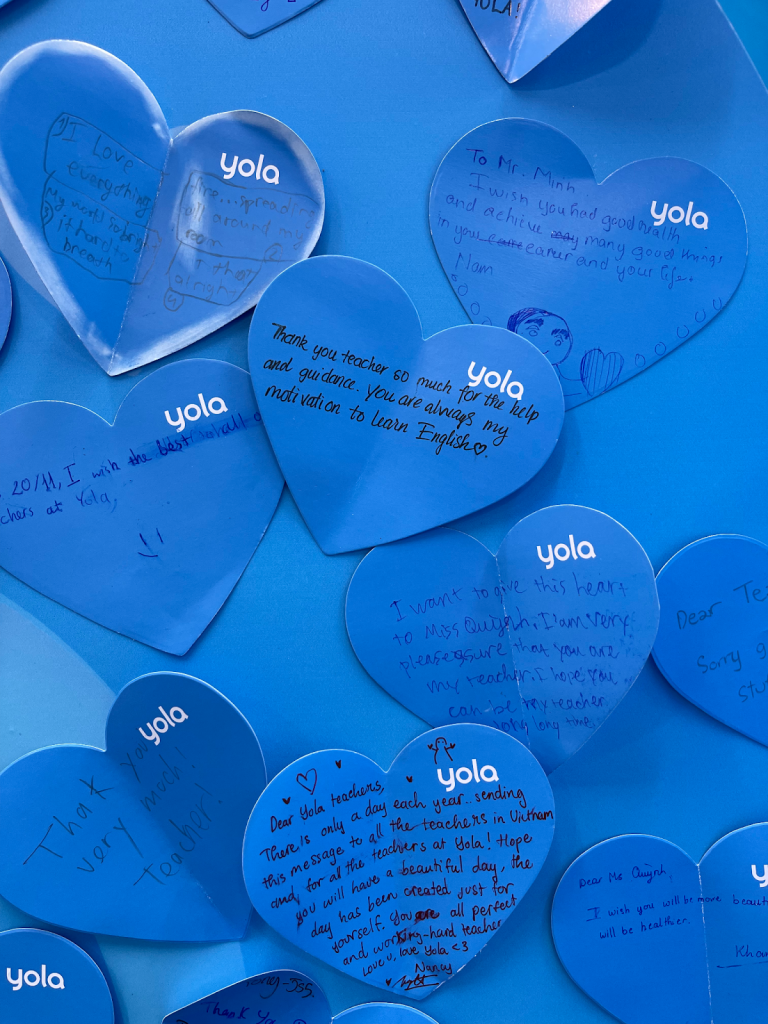 YOLA!
yola
I Love
everything
My world
it hard to
breath
spreading
all around my
room
alright
yola
To Mr. Minh
I wish you had good
and achieve many good things
in your career and your life.
Nam
yola
Thank you teacher so much for the help
and guidance. You are always my
motivation to learn English♡.
yola
20/11, I wish the best
chers at Yola,
yola
I want to give this heart
to Miss Quỳnh, I am very
that you are
my teacher. I hope you
can be my teacher
long long time.
Dear Te
Sorry
stu
yola
Thank you
very much
Teacher!
yola
Dear Yola teachers,
There is only a day each year.. sending
this message to all the teachers in Vietnam
and, for all the teachers at Yola! Hope
you will have a beautiful day, the
day has been created just for
yourself. You are all perfect
and working-hard teacher
Love u, love Yola <3
Nancy
y
Dear Ms Quỳnh,
I wish you will be more beauti
will be healthier.
Kho
yola
Thank Yo